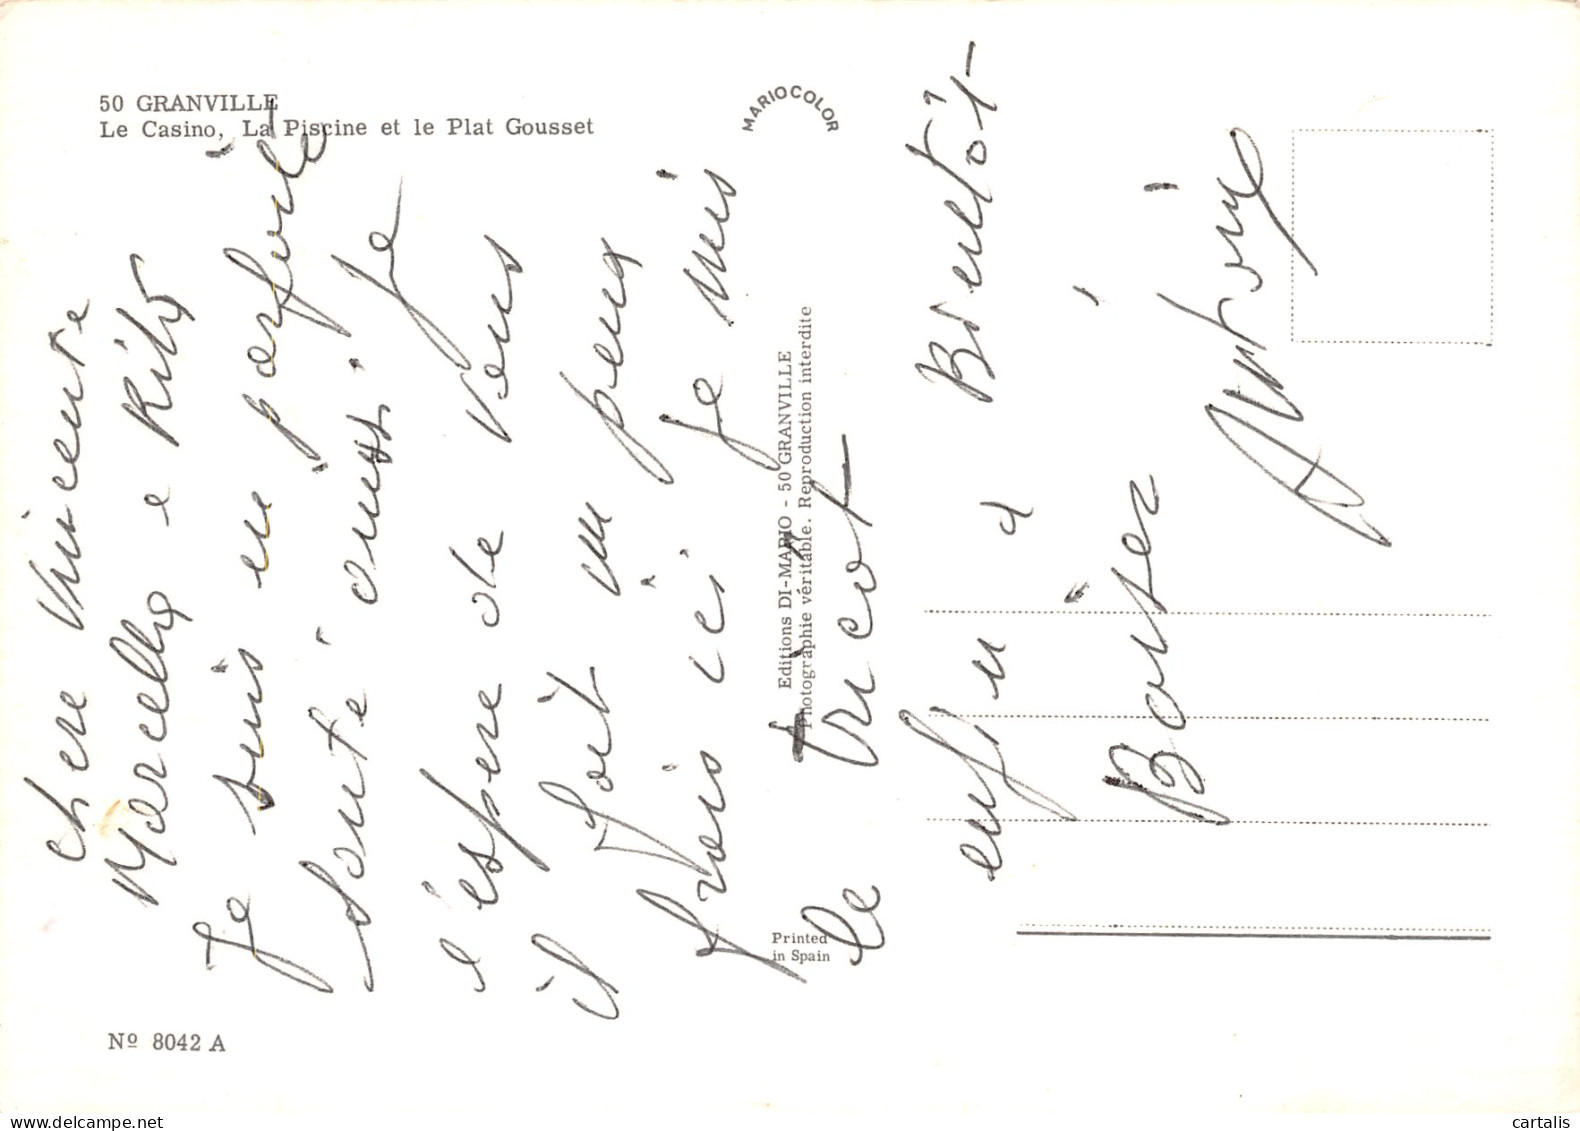 50 GRANVILLE
Le Casino, La Piscine et le Plat Gousset
MARIOCOLOR
chere Vincente
Marcella e Rita
Je suis en parfaite
santé aussi. Je
l'espere de vous
il fait un peux
frais ici je suis
le tricot
enfin a Bientôt
Baiser
Antoine
Editions DI-MARIO - 50 GRANVILLE
Photographie véritable. Reproduction interdite
Printed
in Spain
Nº 8042 A
cartalis